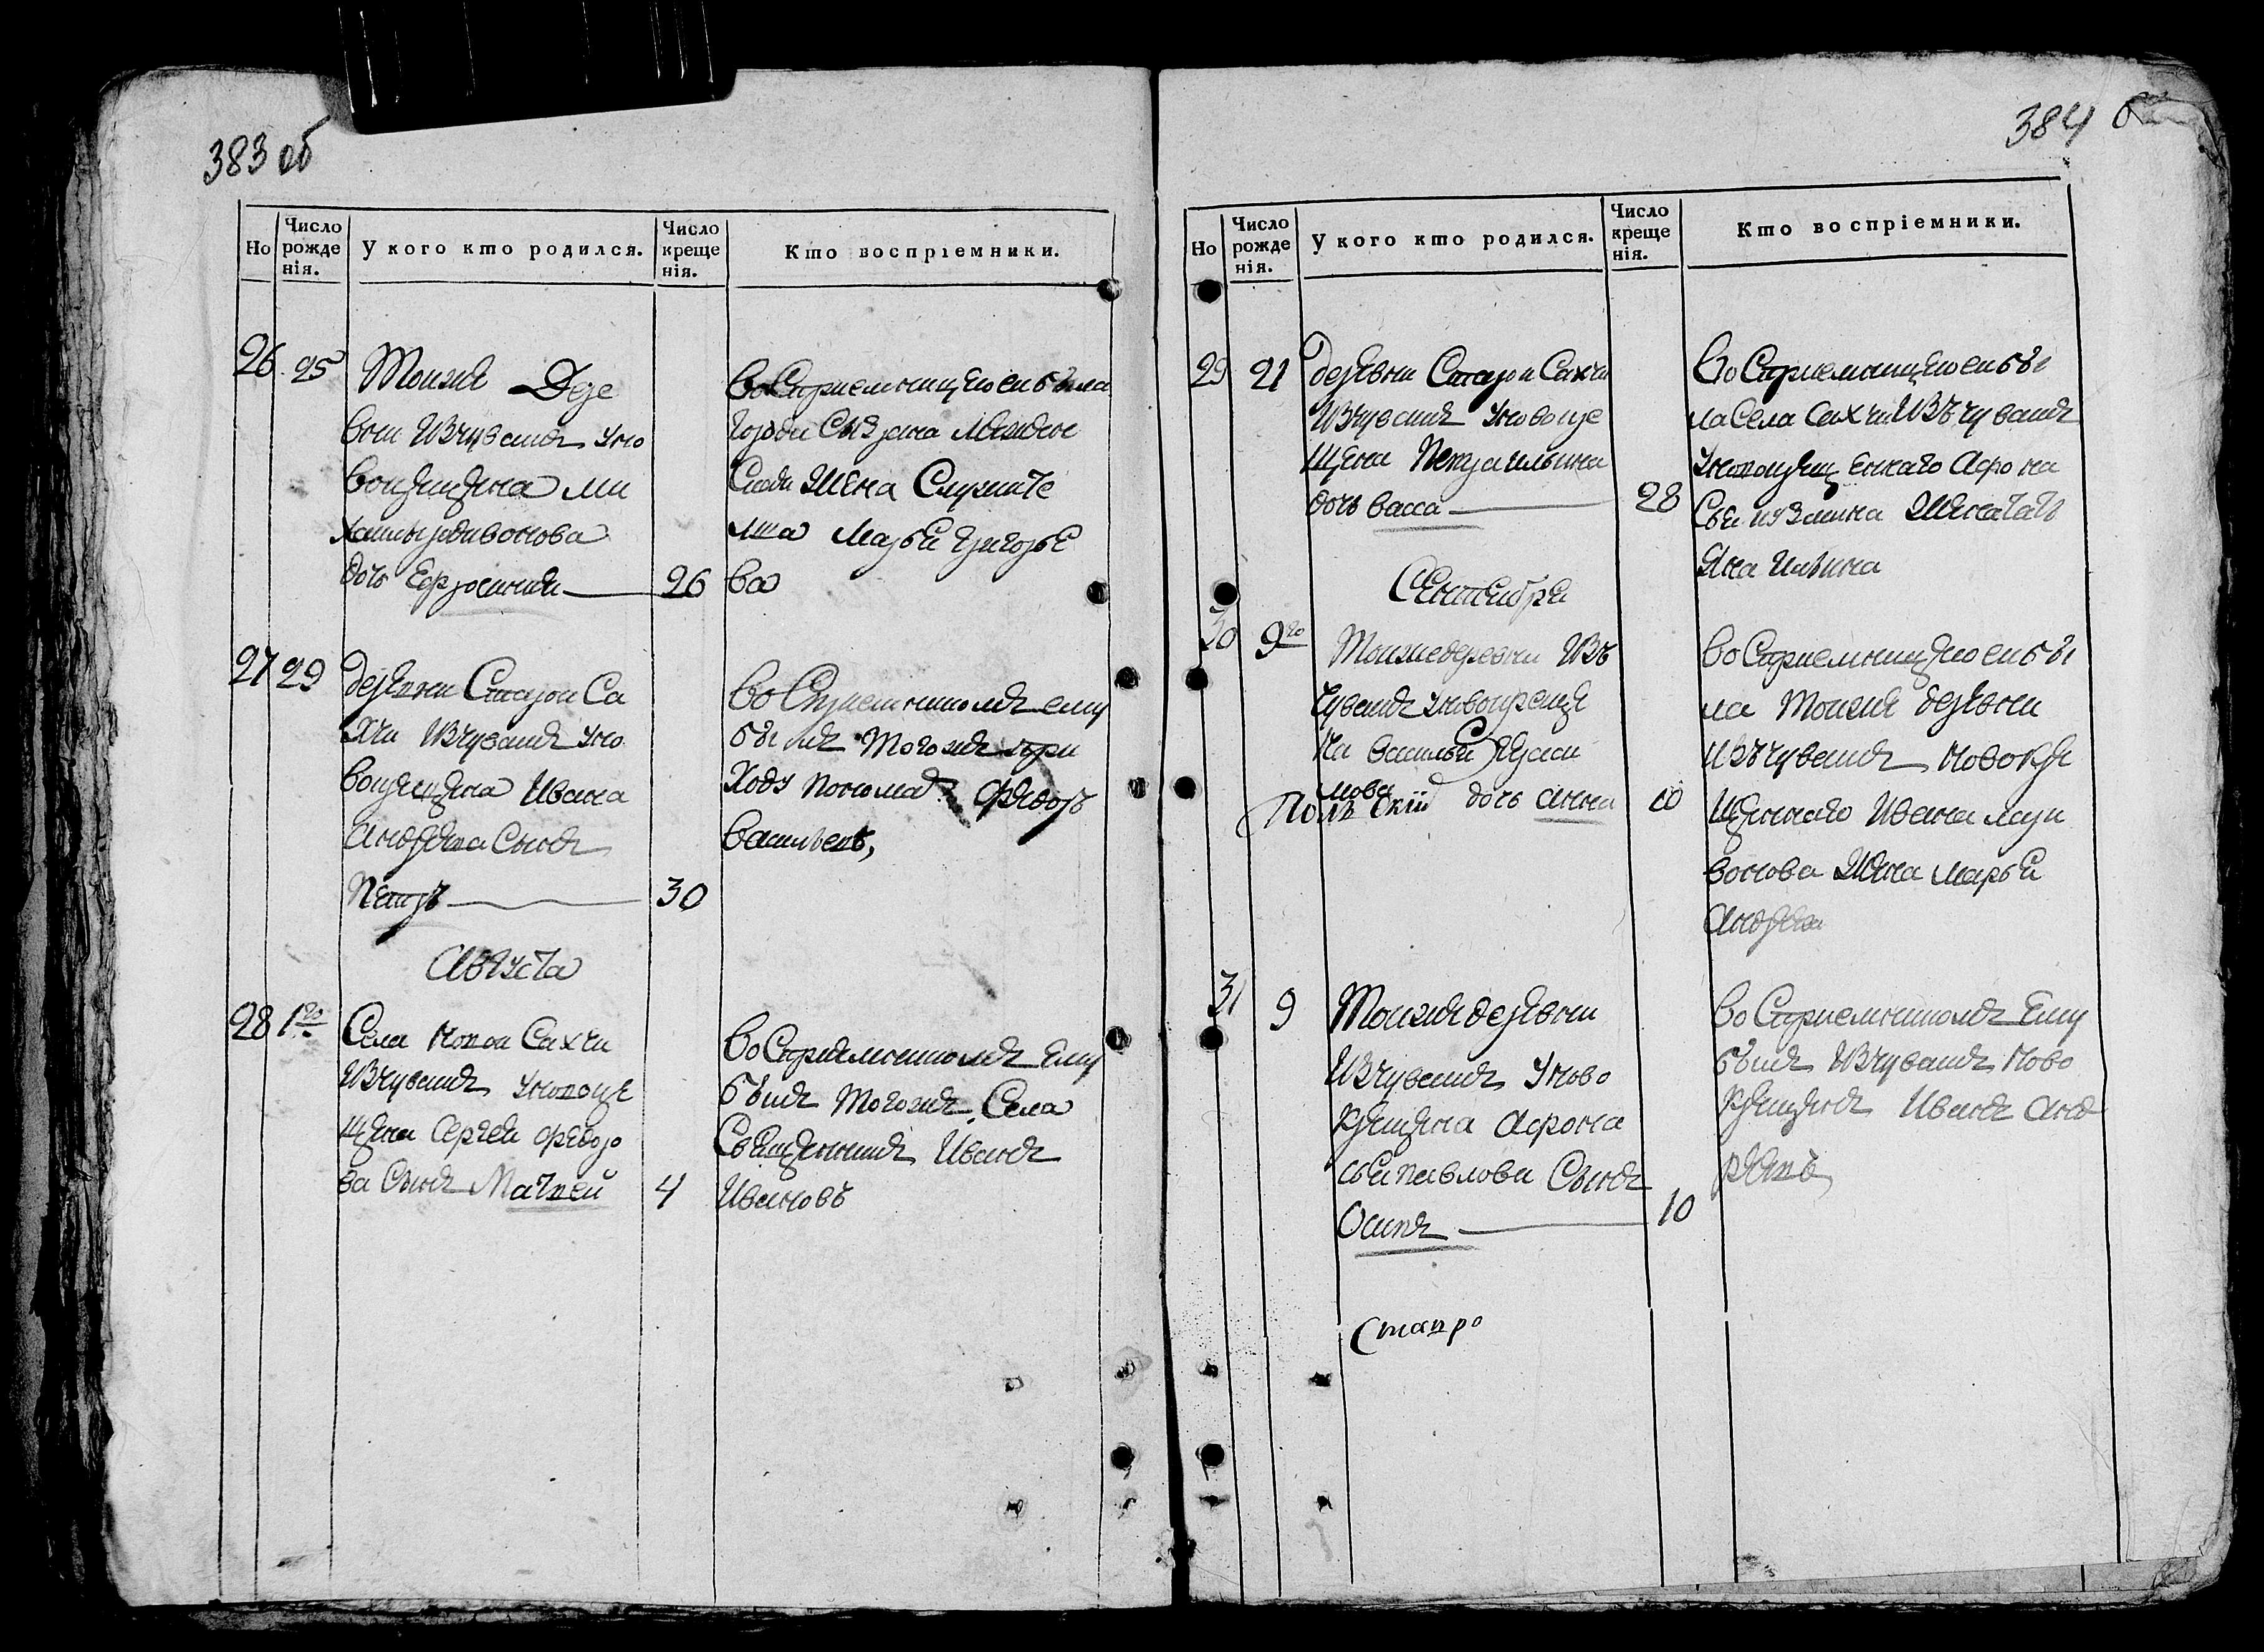 383 об
Но
Число рожде нія.
У кого кто родился.
Число креще нія.
Кто воспріемники.
26 25 Тоиже Дере
вни Изчувашъ уно
вокрещена ми
хаилы родивонова
дочь Ефросиния 26
восприемницею еи была
города Сызрана
жена служите
ля Марья Григорье
ва
27 29 деревни Старои Са
хчи Изчувашъ уно
вокрещена Ивана
Андреева Сынъ
Петръ 30
во Сприемникомъ ему
былъ тогожъ при
ходу понома. Федоръ
Васильевъ,
Августа
28 1го Села Новои Сахчи
Изчувашъ уновокре
щена Сергея Федоро
ва Сынъ Матвей 4
во Сприемникомъ ему
былъ тогожъ Села
Священникъ Иванъ
Ивановъ
384
Но
Число рожде нія.
У кого кто родился.
Число креще нія.
Кто воспріемники.
29 21 деревни Старои Сахчи
Изчувашъ уновокре
щена Петра ильина
дочь васса 28
во Сприемницею еи бы
ла Села Сахчи Изъчувашъ
уновокрещеннаго Афона
сья жена тать
яна Ильина
Сентебря
30 9го Тоижедеревни Изъ
чувашъ уновокреще
на Василья
мова дочь анна 10
Полъ Скїи
во Сприемницею еи бы
ла Тоиже деревни
Изъчувашъ новокре
щеннаго Ивана
жена марья
Андреева
31 9 Тоиже деревни
Изчувашъ уново
крещена Афона
сья павлова Сынъ
Осипъ 10
во Сприемникомъ Ему
былъ Изчувашъ ново
крещенъ Иванъ Анд
реевъ
Ставро